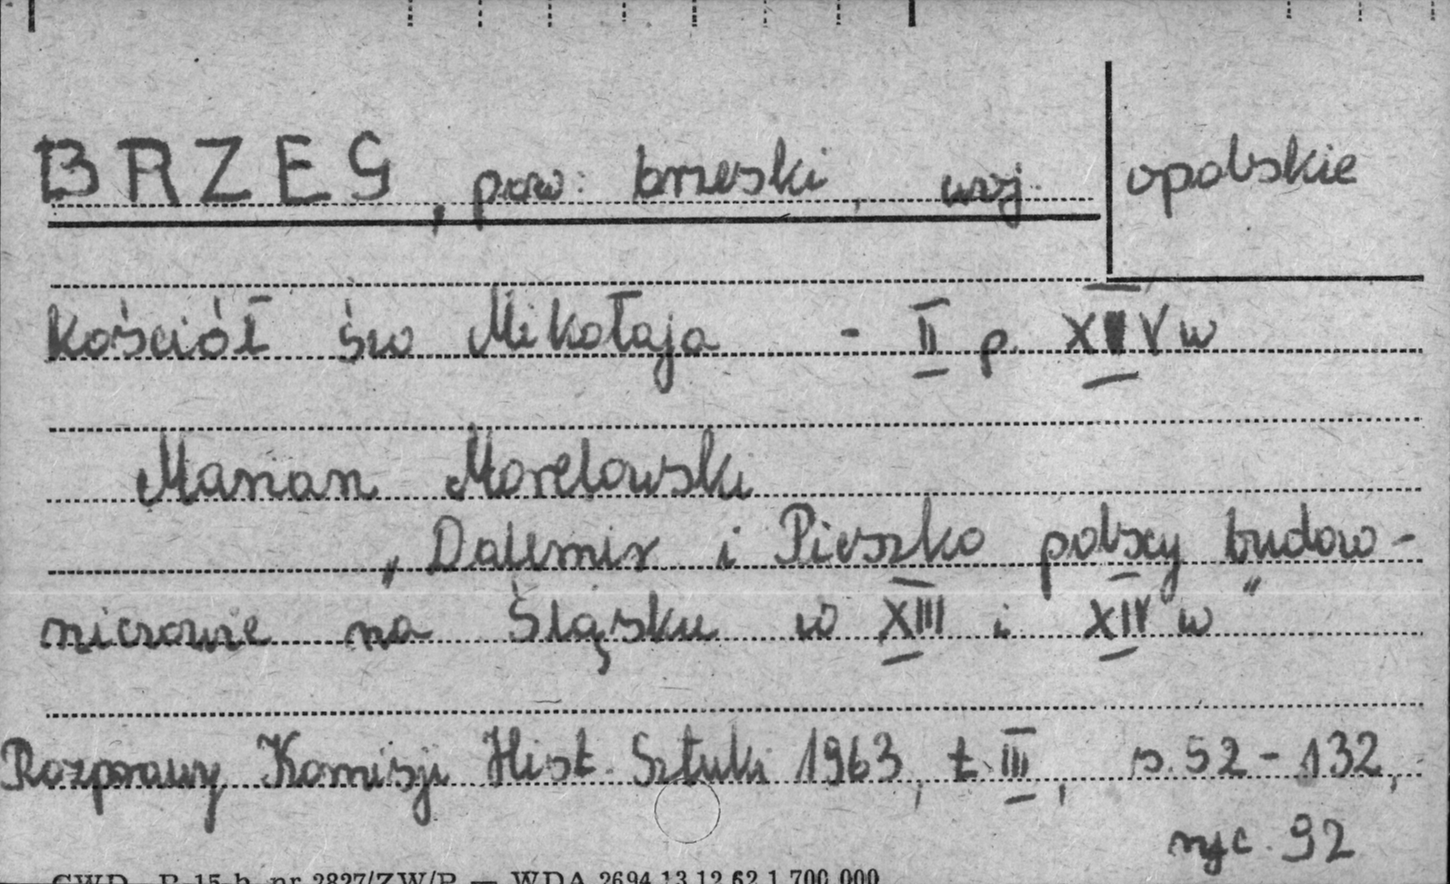 BRZEG, pow. brzeski, woj. opolskie
Kościół św Mikołaja - II p. XIV w
Marian Morelowski
„Dalemir i Pieszko polscy budow-
niczowie na Śląsku w XIII i XIV w"
Rozprawy Komisji Hist. Sztuki 1963, t. III, s. 52-132,
ryc. 92
CWD P-15 h. nr 2827/ZW/P — WDA 2694 13.12.62 1.700.000